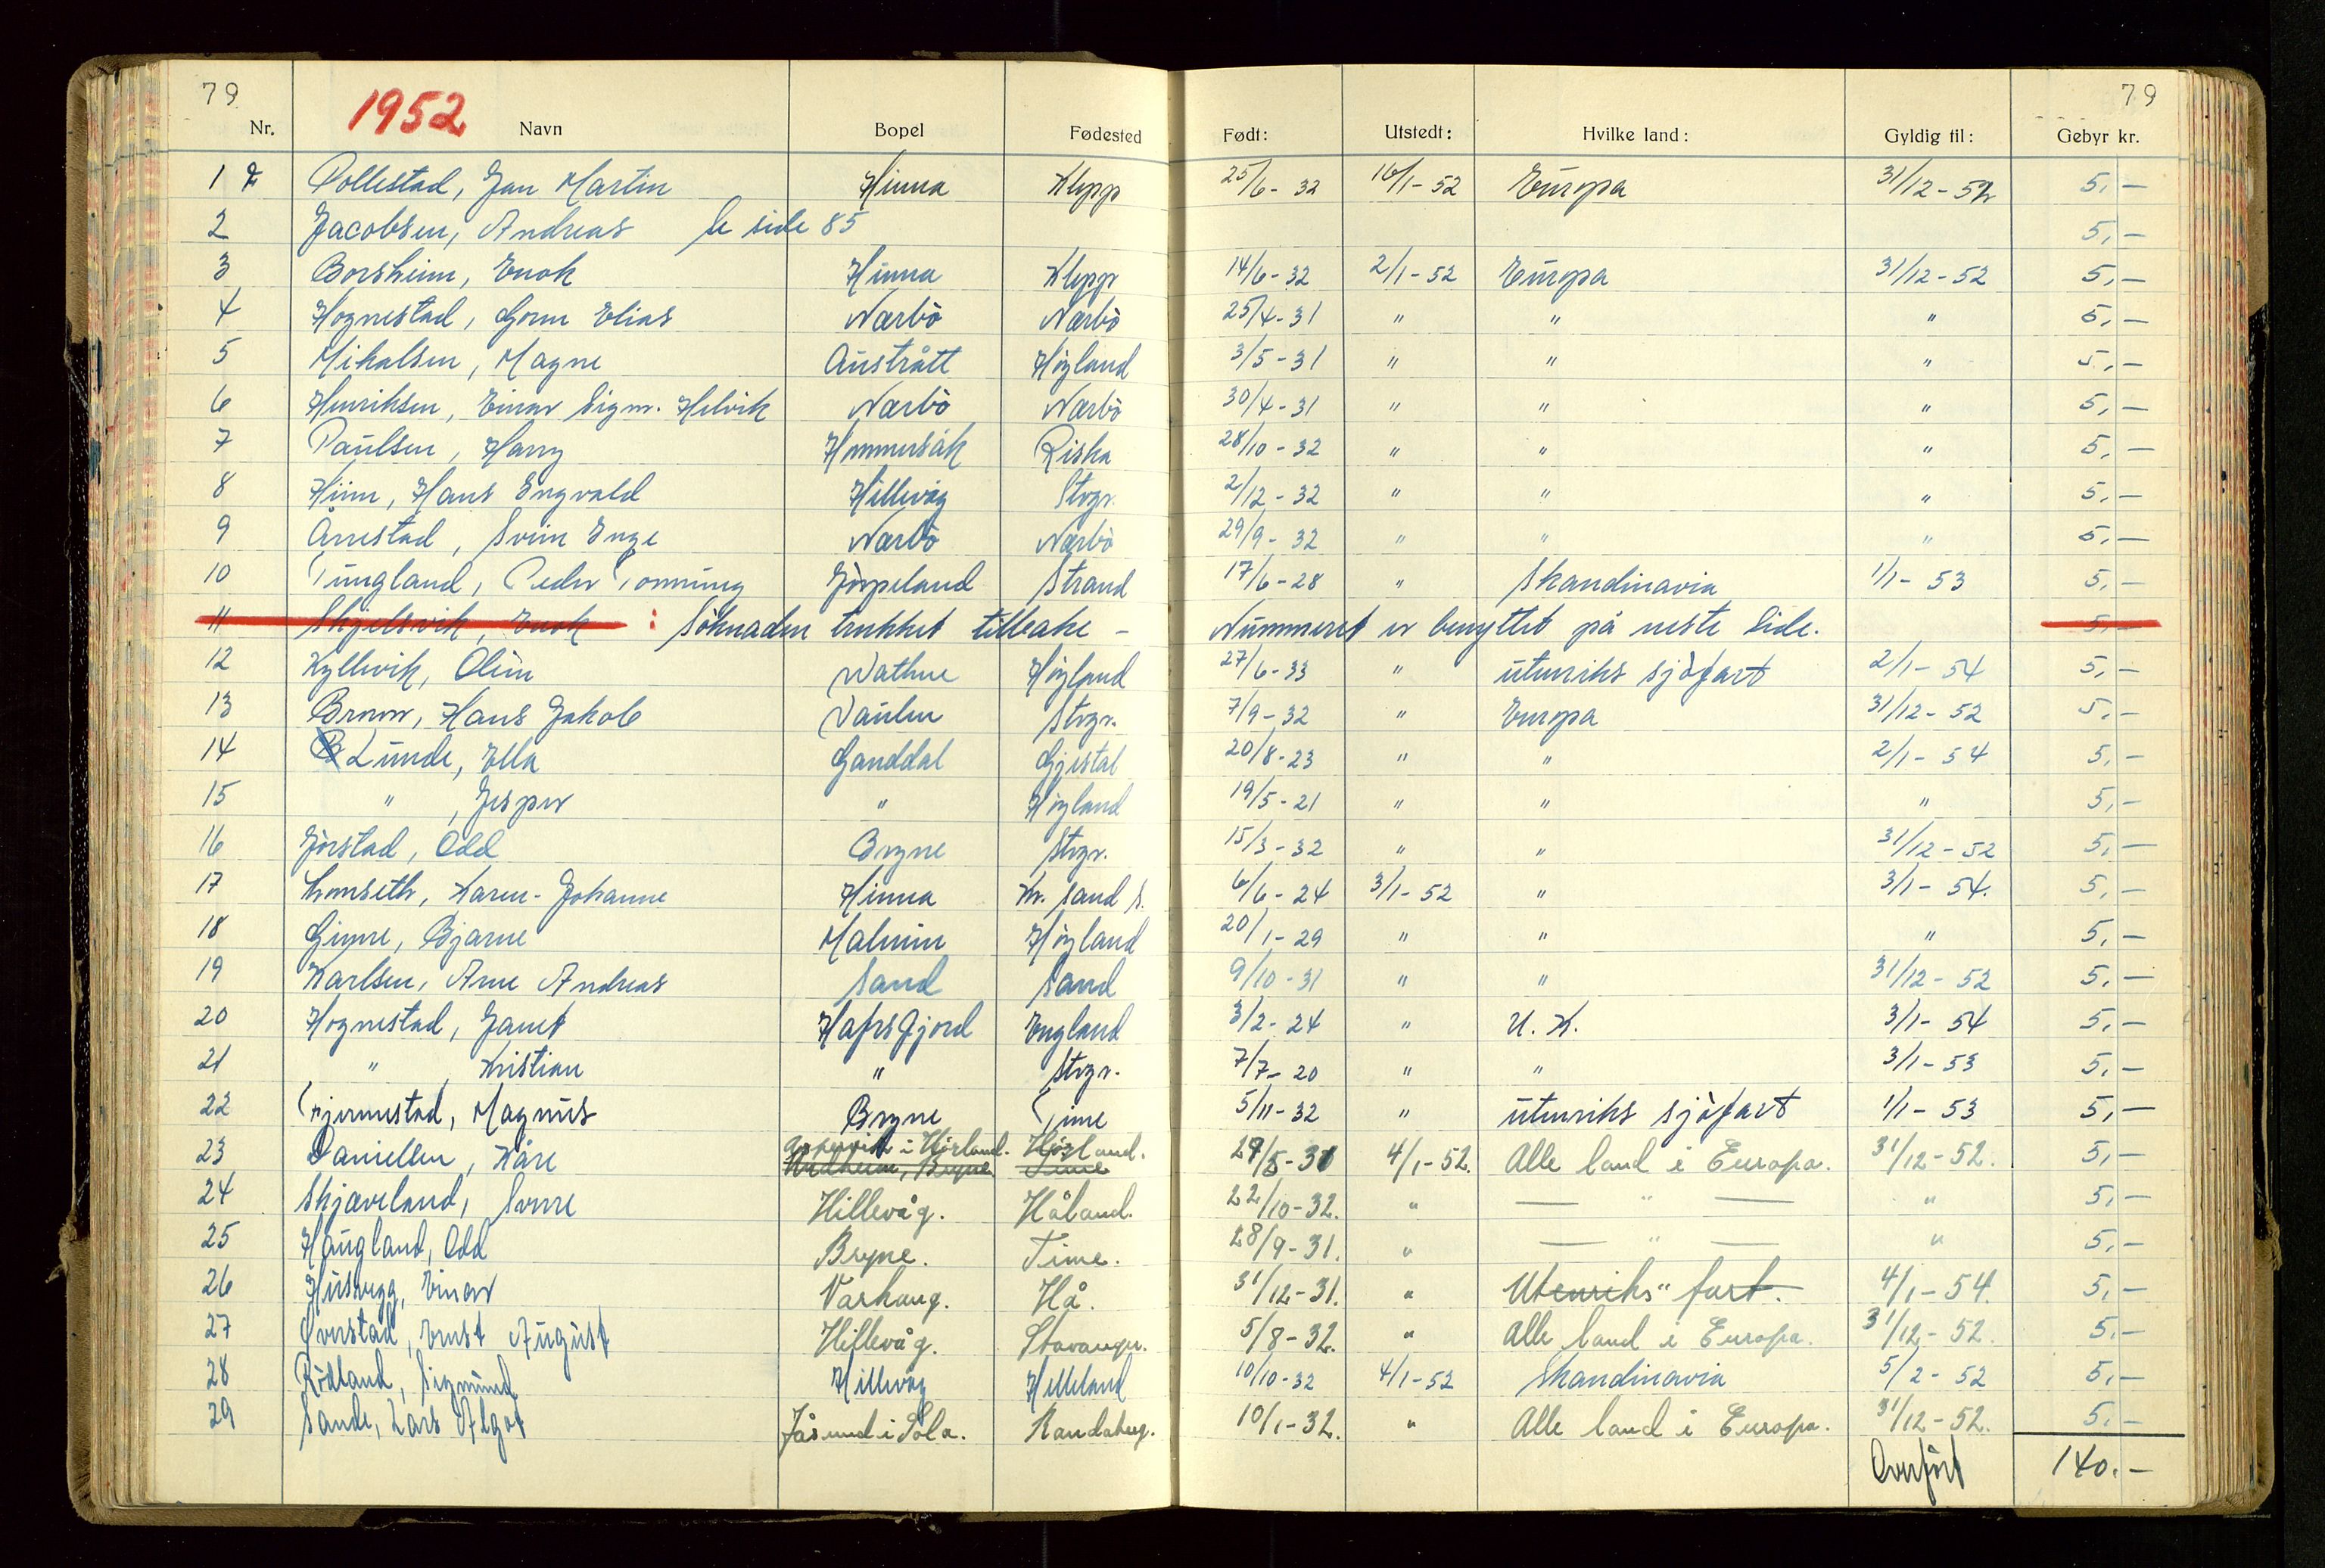 79 79
1952
Nr. Navn Bopel Fødested Født: Utstedt: Hvilke land: Gyldig til: Gebyr kr.
1 Pollestad, Jan Martin Hinna Klepp 25/6-32 16/1-52 Europa 31/12-52 5,-
2 Jacobsen, Andreas Se side 85 5,-
3 Borsheim, Enok Hinna Klepp 14/6-32 2/1-52 Europa 31/12-52 5,-
4 Hognestad, Gorm Elias Nærbö Nærbö 25/4-31 " " " 5,-
5 Mikalsen, Magne Austrått Höyland 3/5-31 " " " 5,-
6 Henriksen, Einar Sigm. Helvik Nærbö Nærbö 30/4-31 " " " 5,-
7 Paulsen, Harry Hommersåk Riska 28/10-32 " " " 5,-
8 Hiim, Hans Ingvald Hillevåg Stvgr. 2/12-32 " " " 5,-
9 Årrestad, Svein Inge Nærbö Nærbö 29/9-32 " " " 5,-
10 Tungland, Peder Tonning Jörpeland Strand 17/6-28 " Skandinavia 1/1-53 5,-
11 Skjelsvik, Enok : Söknaden trukket tilbake - Nummeret er benyttet på neste side. 5,-
12 Kyllevik, Olein Vathne Höyland 27/6-33 " utenriks sjöfart 2/1-54 5,-
13 Bruno, Hans Jakob Vaulen Stvgr. 7/9-32 " Europa 31/12-52 5,-
14 Lunde, Ella Ganddal Gjestal 20/8-23 " " 2/1-54 5,-
15 " , Jesper " Höyland 19/5-21 " " " 5,-
16 Jörstad, Odd Bryne Stvgr. 15/3-32 " " 31/12-52 5,-
17 Lomseth, Karen-Johanne Hinna Kr. sand S. 6/6-24 3/1-52 " 3/1-54. 5,-
18 Gimre, Bjarne Malmin Höyland 20/1-29 " " " 5,-
19 Karlsen, Arne Andreas Sand Sand 9/10-31 " " 31/12-52 5,-
20 Hognestad, Janet Hafrsfjord England 3/2-24 " U. K. 3/1-54 5,-
21 " , Kristian " Stvgr. 7/7-20 " " 3/1-53 5,-
22 Tjemestad, Magnus Bryne Time 5/11-32 " utenriks sjöfart 1/1-53 5,-
23 Danielsen, Kåre i Höyland. Höyland. Bryne Time 27/5-31 4/1-52. Alle land i Europa. 31/12-52. 5,-
24 Skjæveland, Sverre Hillevåg. Håland. 22/10-32. " — " — " 5,-
25 Haugland, Odd Bryne. Time. 28/9-31. " — " — " 5,-
26 Husvegg, Einar Varhaug. Hå. 31/12-31. " Utenriks" fart. 4/1-54. 5,-
27 Överstad, Ernst August Hillevåg. Stavanger. 5/8-32. " Alle land i Europa. 31/12-52. 5,-
28 Rödland, Sigmund Hillevåg Helleland 10/10-32 4/1-52 Skandinavia 5/2-52 5,-
29 Sande, Lars Algot Jåsund i Sola. Randaberg. 10/1-32. " Alle land i Europa. 31/12-52. 5,-
Overfört 140.-